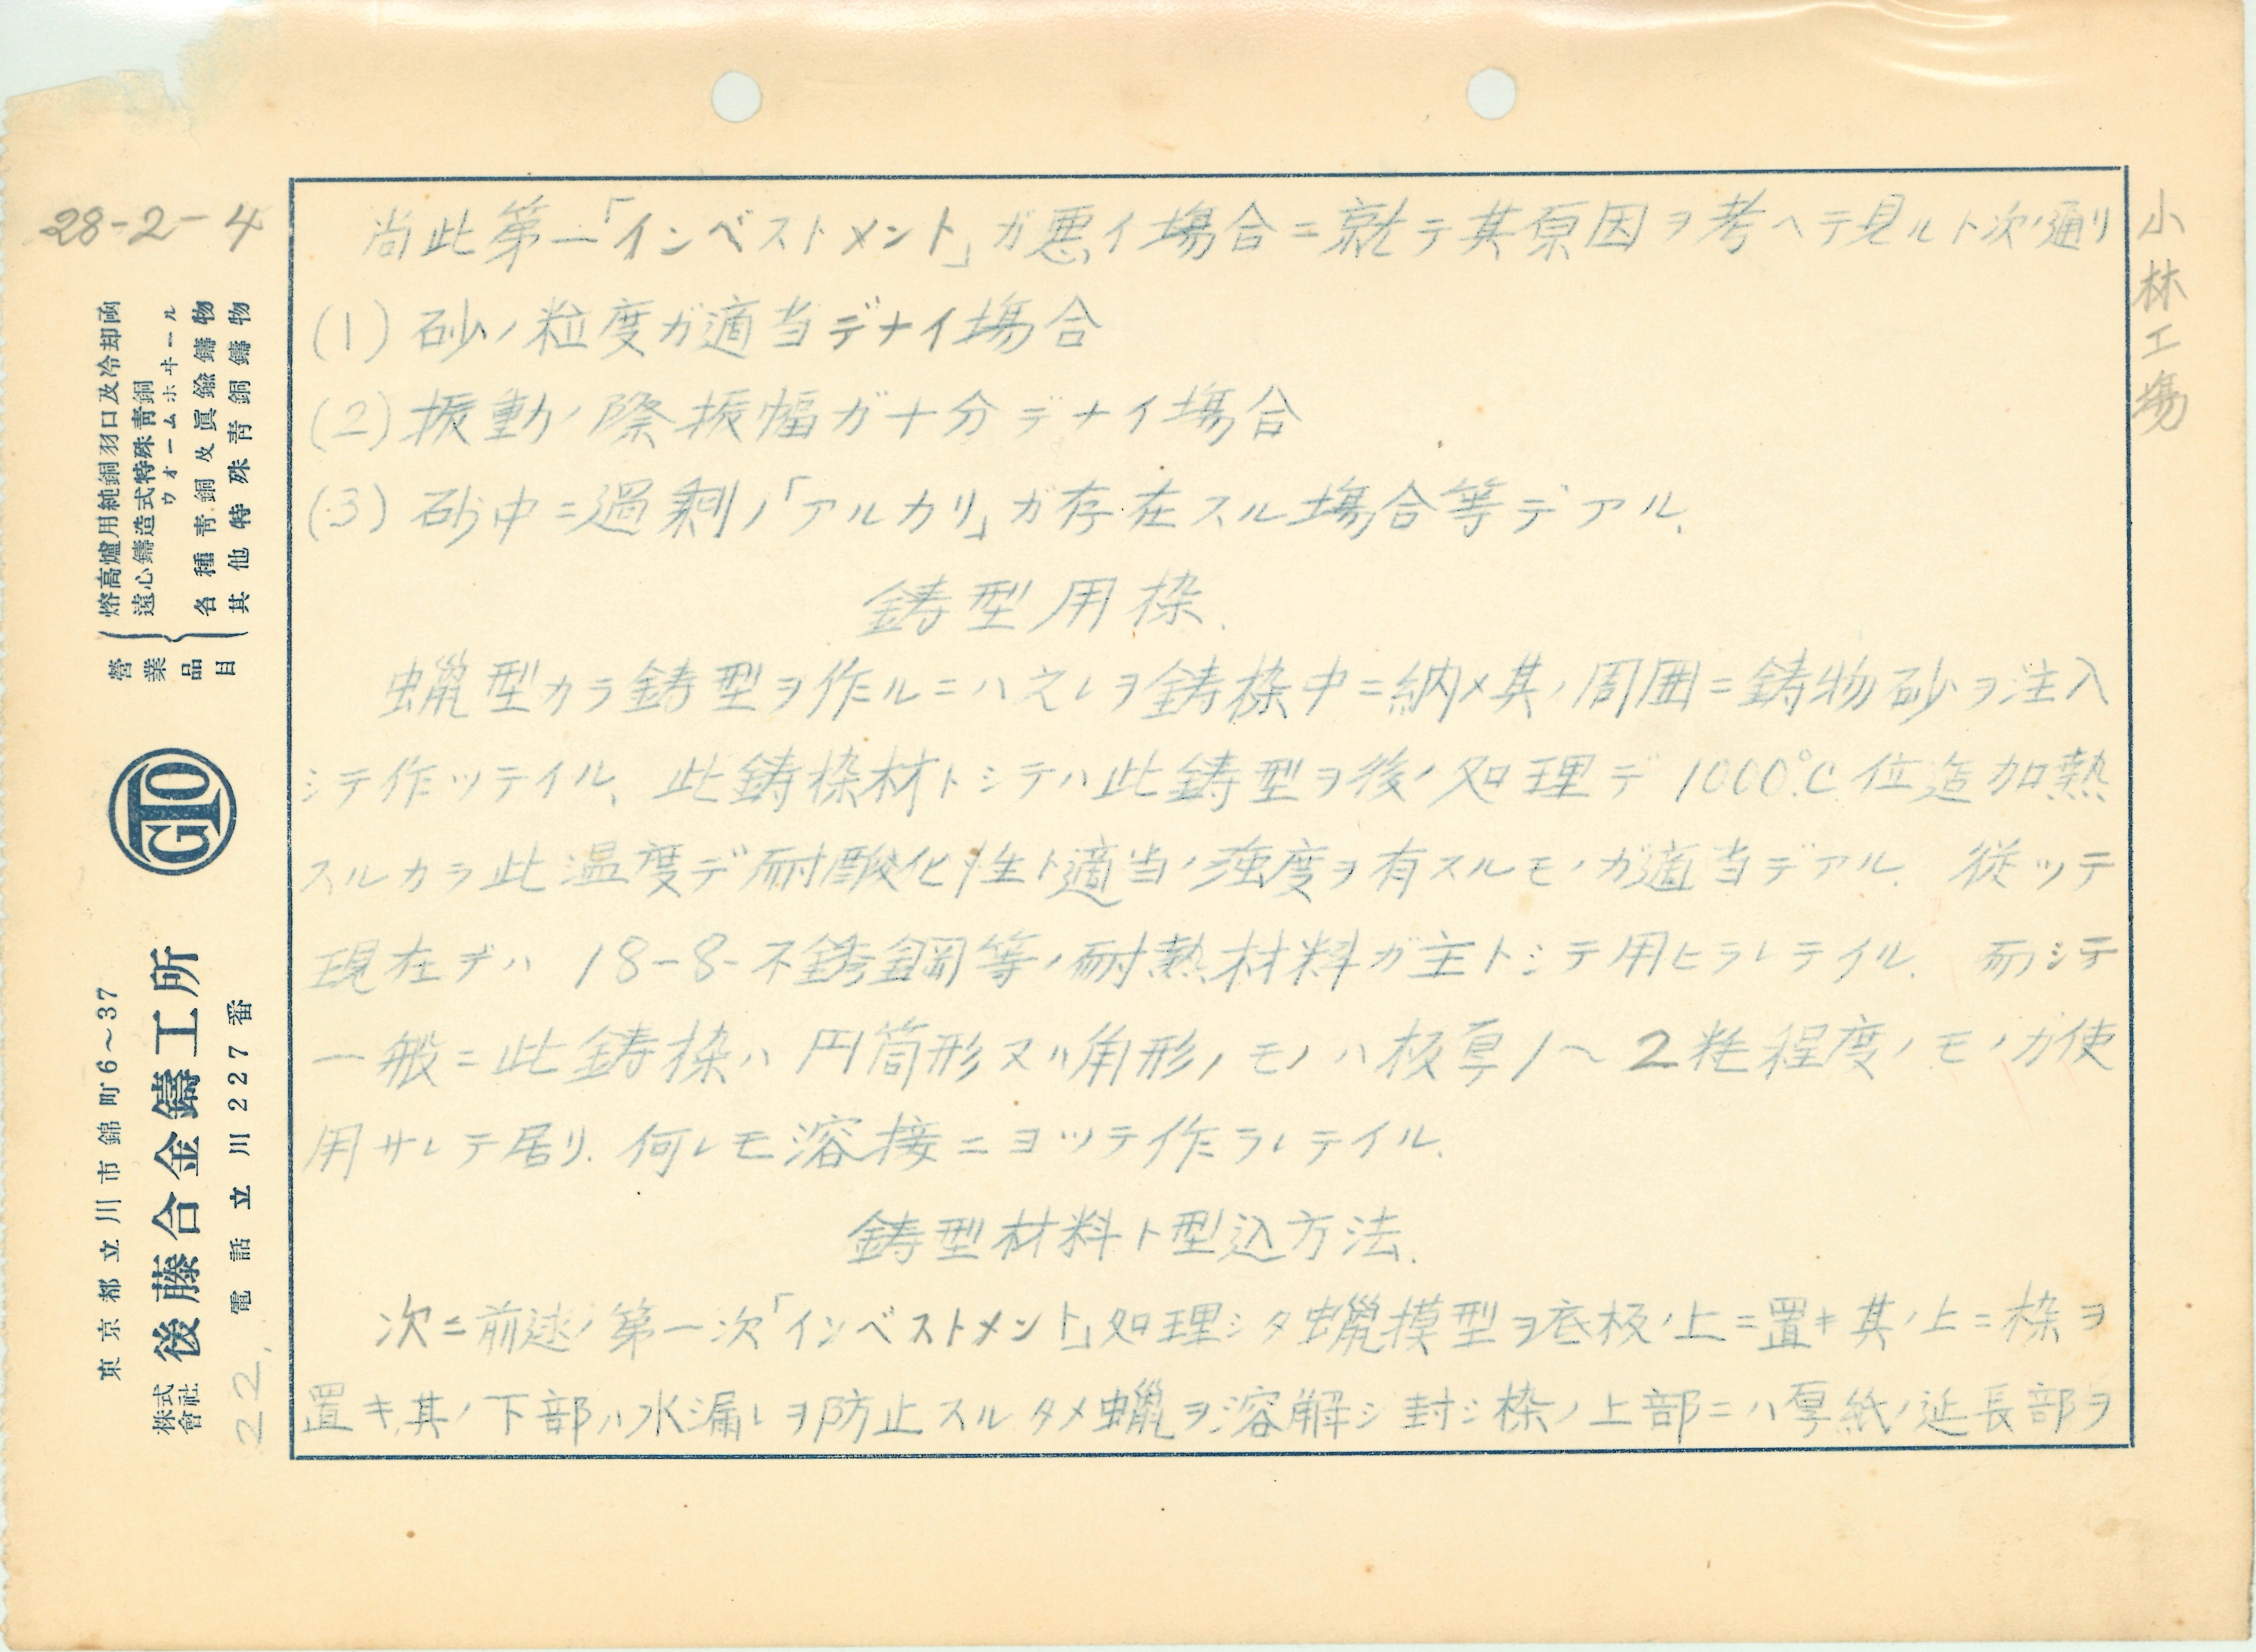 28-2-4
小林工場
尚此第一「インベストメント」ガ悪イ場合ニ就テ其原因ヲ考ヘテ見ルト次ノ通リ
(1) 砂ノ粒度ガ適当デナイ場合
(2) 振動ノ際振幅ガ十分デナイ場合
(3) 砂中ニ過剰ノ「アルカリ」ガ存在スル場合等デアル.
鋳型用枠.
蠟型カラ鋳型ヲ作ルニハ之レヲ鋳枠中ニ納メ其ノ周囲ニ鋳物砂ヲ注入
シテ作ッテイル、此鋳枠材トシテハ此鋳型ヲ後ノ処理デ1000℃位迄加熱
スルカラ此温度デ耐酸化性ト適当ノ強度ヲ有スルモノガ適当デアル. 従ッテ
現在デハ 18-8-不銹鋼等ノ耐熱材料ガ主トシテ用ヒラレテイル. 而シテ
一般ニ此鋳枠ハ円筒形又ハ角形ノモノハ板厚1〜2粍程度ノモノガ使
用サレテ居リ. 何レモ溶接ニヨッテ作ラレテイル.
鋳型材料ト型込方法.
次ニ前述ノ第一次「インベストメント」処理シタ蠟模型ヲ底板ノ上ニ置キ其ノ上ニ枠ヲ
置キ其ノ下部ハ水漏レヲ防止スルタメ蠟ヲ溶解シ封シ枠ノ上部ニハ厚紙ノ延長部ヲ
營業品目
熔高爐用純銅羽口及冷却函
遠心鑄造式特殊青銅
ウオームホヰール
各種靑銅及眞鍮鑄物
其他特殊靑銅鑄物
GTO
東京都立川市錦町6〜37
株式會社 後藤合金鑄工所
電話立川227番
22.